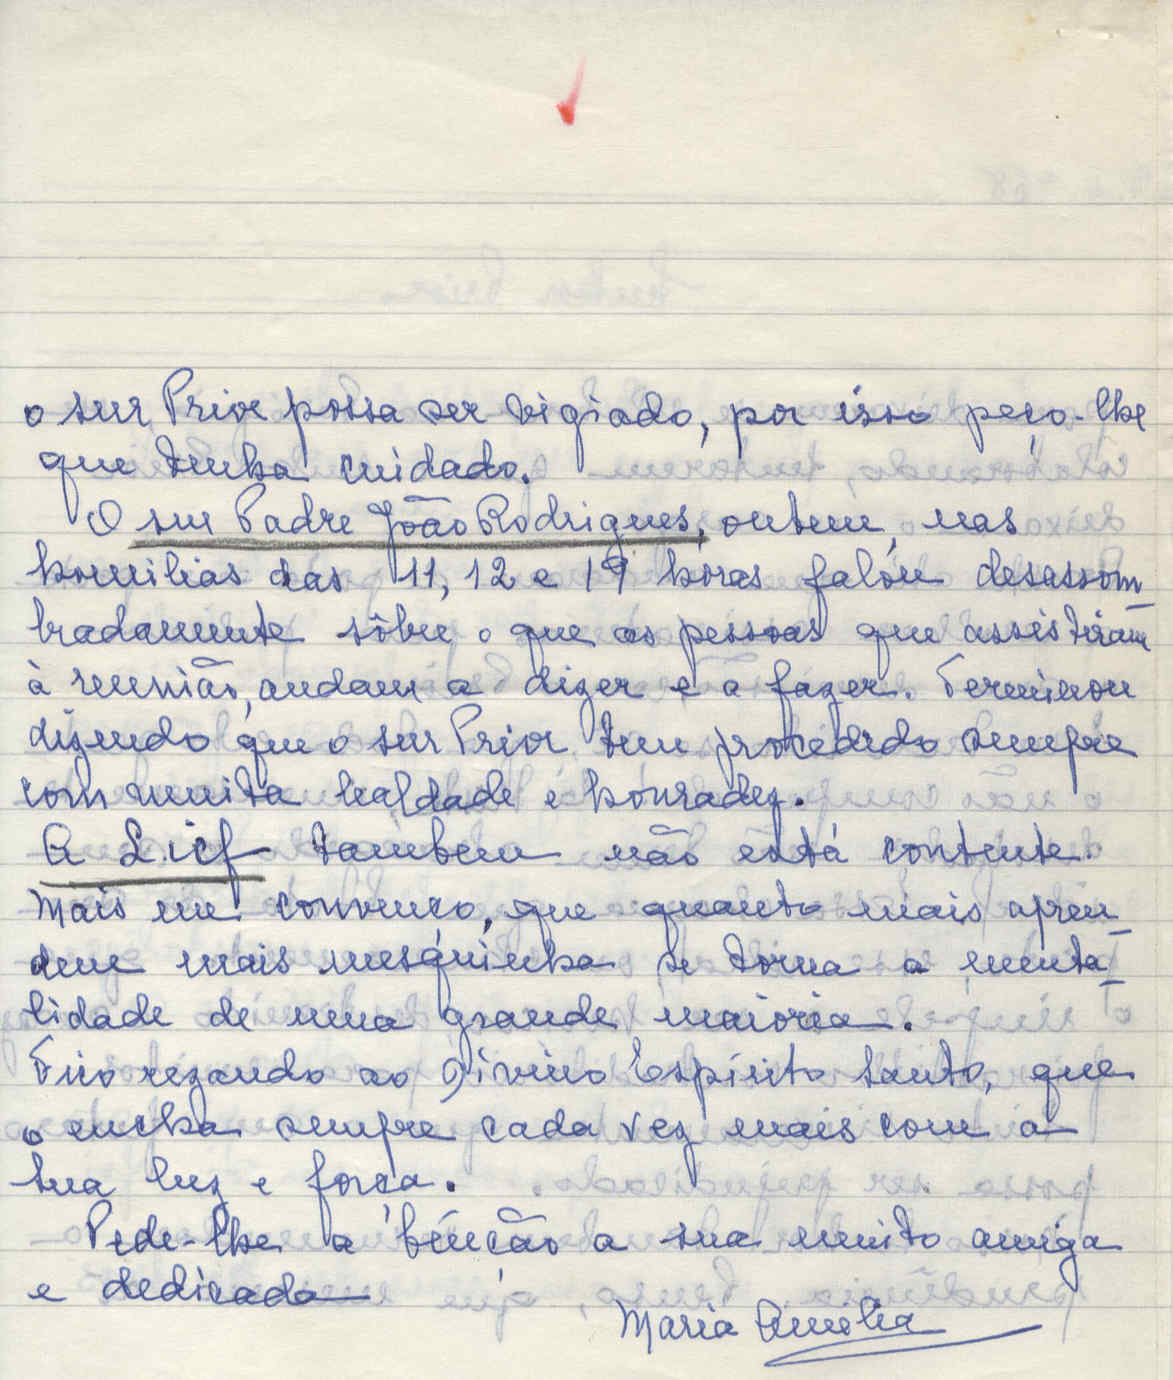 o snr Prior possa ser vigiado, por isso peço-lhe
que tenha cuidado.
O snr Padre João Rodrigues, ontem, nas
homilias das 11, 12 e 19 horas falou desassom-
bradamente sôbre o que as pessoas que assistiram
à reunião, andam a dizer e a fazer. Terminou
dizendo que o snr Prior tem procedido sempre
com muita lealdade e honradez.
A Licf tambem não está contente.
Mais me convenço, que quanto mais apren-
dem mais mesquinha se torna a menta-
lidade de uma grande maioria.
Fico rezando ao Divino Espírito Santo, que
o encha sempre cada vez mais com a
sua luz e força.
Pede-lhe a bênção a sua muito amiga
e dedicada
Maria Emilia